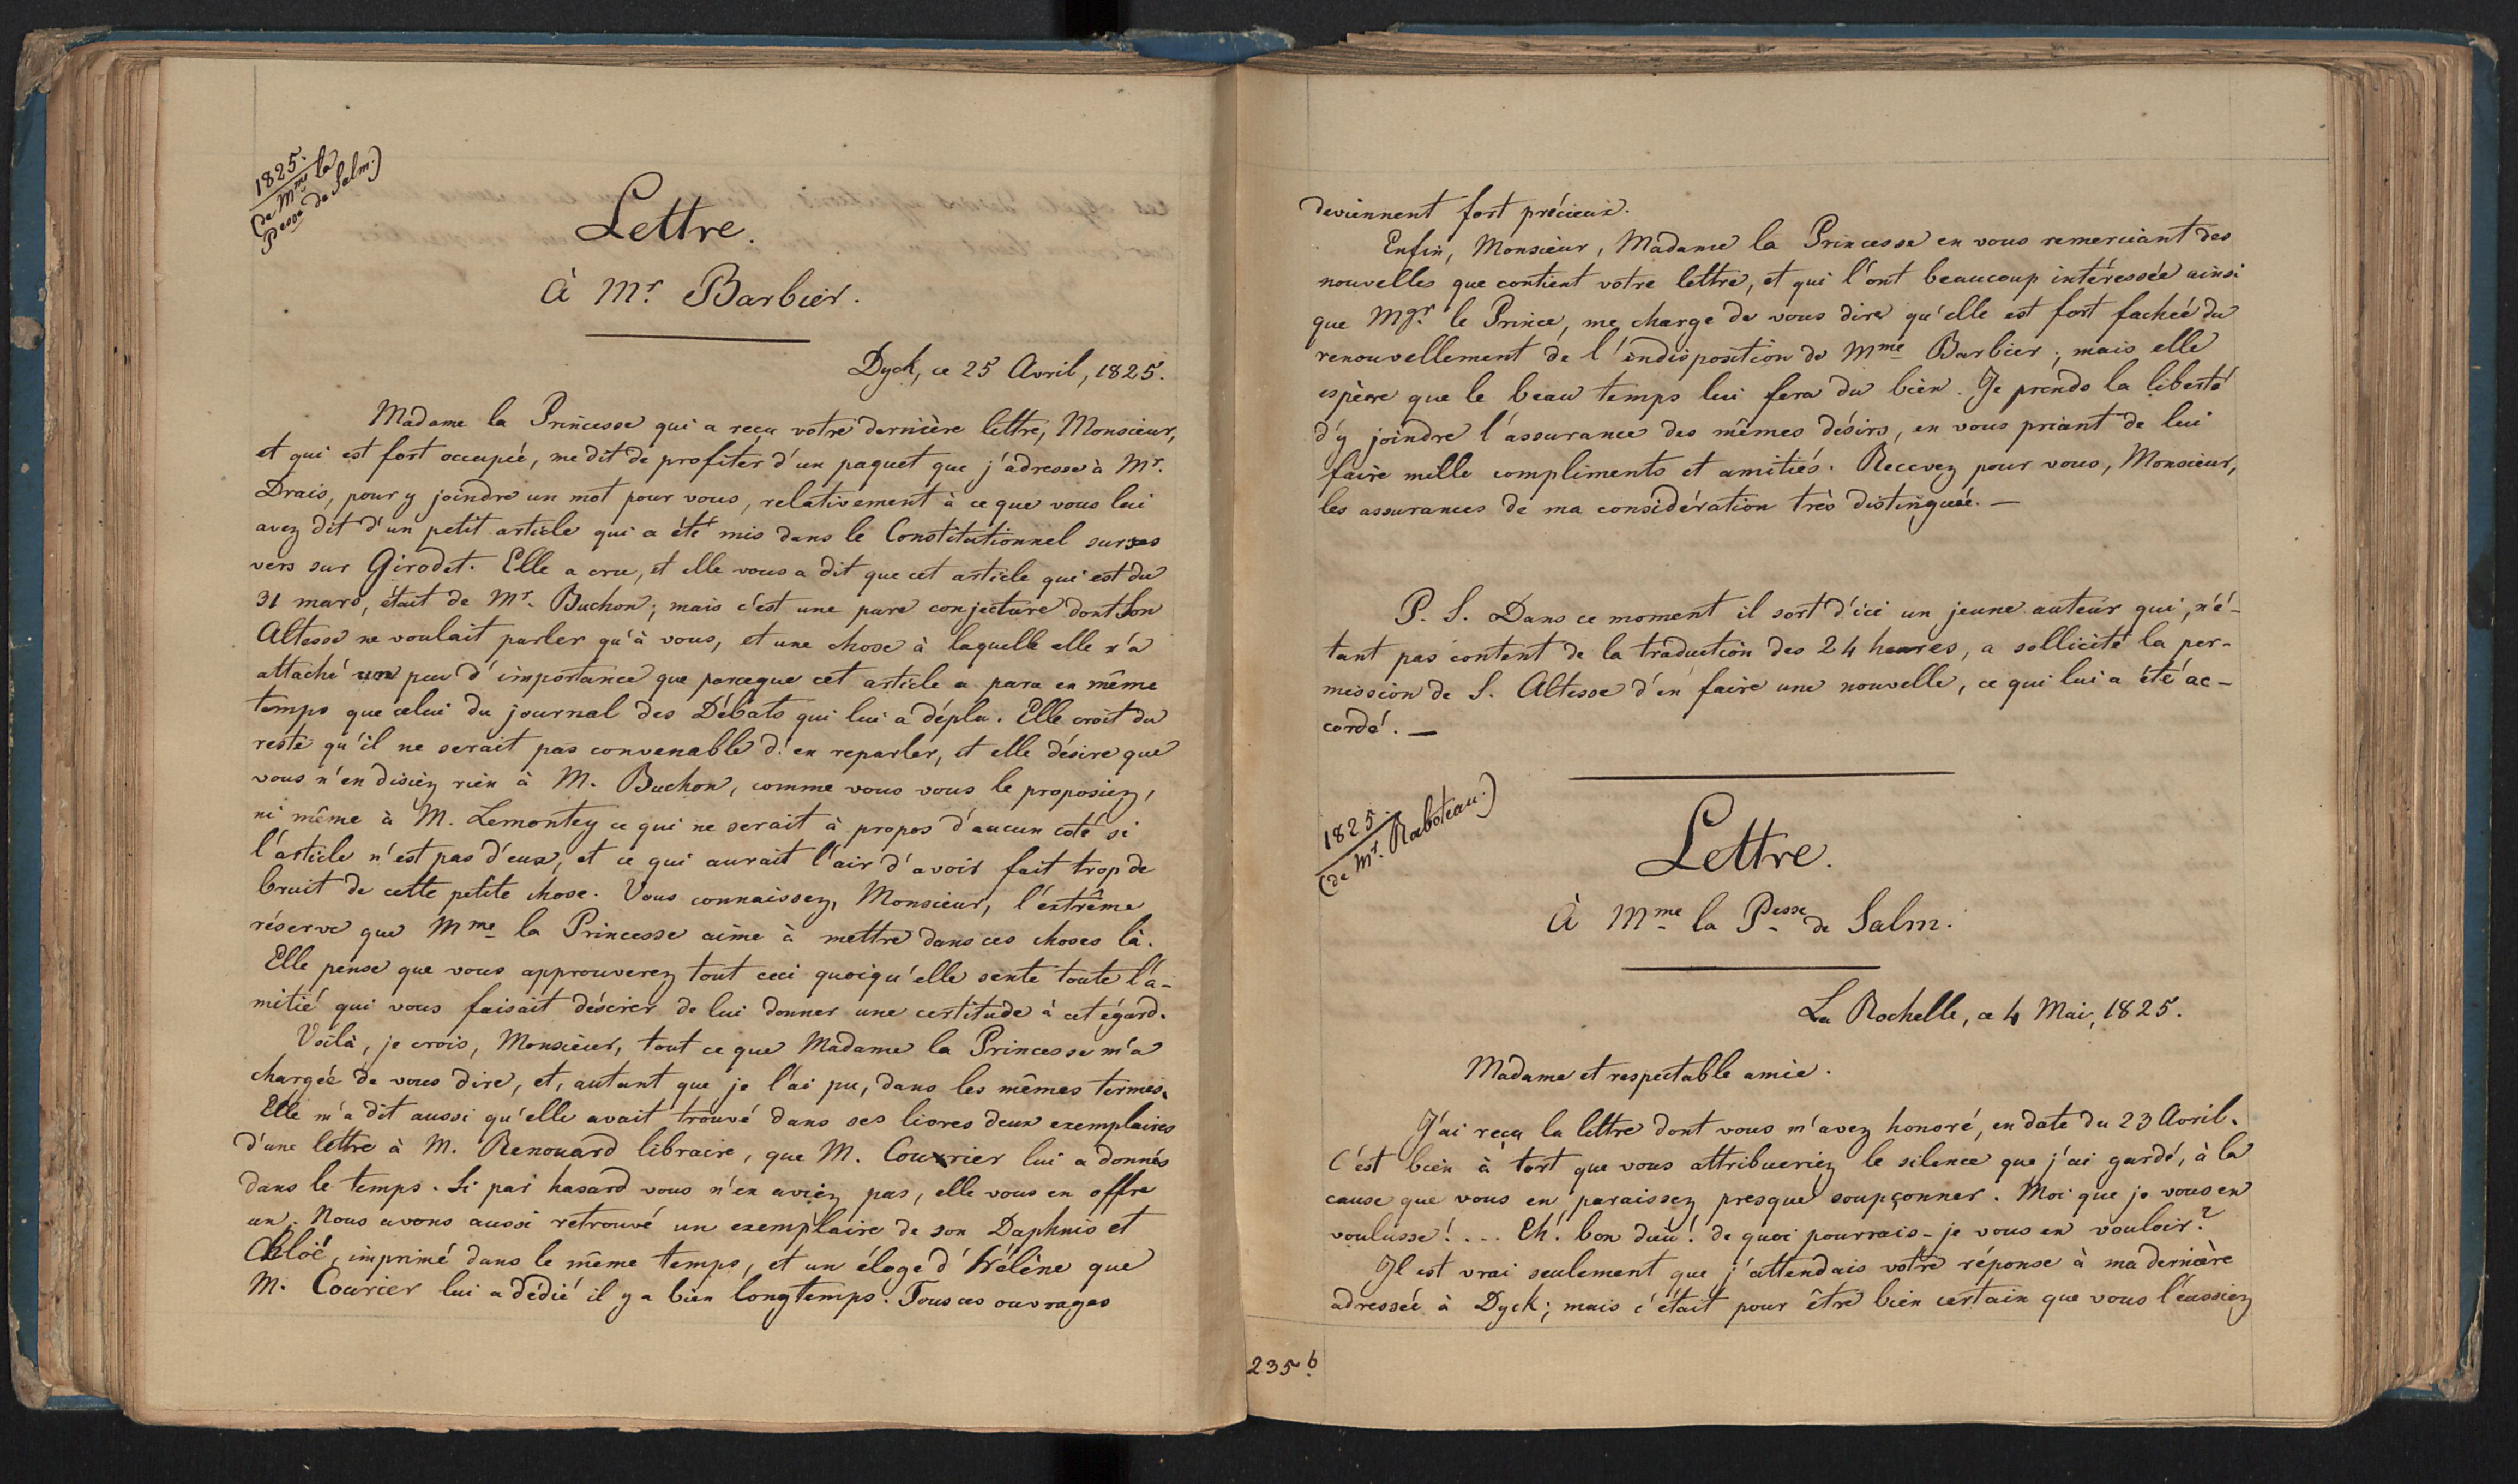 1825.
(de Mme la
Pesse de Salm.)
Lettre.
À Mr. Barbier.
Dyck, ce 25 Avril, 1825.
Madame la Princesse qui a reçu votre dernière lettre, Monsieur,
et qui est fort occupée, me dit de profiter d'un paquet que j'adresse à Mr.
Drais, pour y joindre un mot pour vous, relativement à ce que vous lui
avez dit d'un petit article qui a été mis dans le Constitutionnel sur ses
vers sur Girodet. Elle a cru, et elle vous a dit que cet article qui est du
31 mars, était de Mr. Buchon; mais c'est une pure conjecture dont Son
Altesse ne voulait parler qu'à vous, et une chose à laquelle elle n'a
attaché un peu d'importance que parceque cet article a paru en même
temps que celui du journal des Débats qui lui a déplu. Elle croit du
reste qu'il ne serait pas convenable d'en reparler, et elle désire que
vous n'en disiez rien à M. Buchon, comme vous vous le proposiez,
ni même à M. Lemontey ce qui ne serait à propos d'aucun coté si
l'article n'est pas d'eux, et ce qui aurait l'air d'avoir fait trop de
bruit de cette petite chose. Vous connaissez, Monsieur, l'extrême
réserve que Mme la Princesse aime à mettre dans ces choses là.
Elle pense que vous approuverez tout ceci quoiqu'elle sente toute l'a-
mitié qui vous faisait désirer de lui donner une certitude à cet égard.
Voilà, je crois, Monsieur, tout ce que Madame la Princesse m'a
chargée de vous dire, et, autant que je l'ai pu, dans les mêmes termes.
Elle m'a dit aussi qu'elle avait trouvé dans ses livres deux exemplaires
d'une lettre à M. Renouard libraire, que M. Courrier lui a donnés
dans le temps. Si par hasard vous n'en aviez pas, elle vous en offre
un. Nous avons aussi retrouvé un exemplaire de son Daphnis et
Chloé, imprimé dans le même temps, et un éloge d'Hélène que
M. Courier lui a dédié il y a bien longtemps. Tous ces ouvrages
deviennent fort précieux.
Enfin, Monsieur, Madame la Princesse en vous remerciant des
nouvelles que contient votre lettre, et qui l'ont beaucoup intéressée ainsi
que Mgr. le Prince, me charge de vous dire qu'elle est fort fachée du
renouvellement de l'indisposition de Mme Barbier; mais elle
espère que le beau temps lui fera du bien. Je prends la liberté
d'y joindre l'assurance des mêmes désirs, en vous priant de lui
faire mille compliments et amitiés. Recevez pour vous, Monsieur,
les assurances de ma considération très distinguée. —
P. S. Dans ce moment il sort d'ici un jeune auteur qui, n'é-
tant pas content de la traduction des 24 heures, a sollicité la per-
mission de S. Altesse d'en faire une nouvelle, ce qui lui a été ac-
cordé. —
1825.
(de Mr. Raboteau.)
Lettre.
À Mme la Pesse de Salm.
La Rochelle, ce 4 Mai, 1825.
Madame et respectable amie.
J'ai reçu la lettre dont vous m'avez honoré, en date du 23 Avril.
C'est bien à tort que vous attribueriez le silence que j'ai gardé, à la
cause que vous en paraissez presque soupçonner. Moi que je vous en
voulusse! .... Eh! bon dieu! de quoi pourrais-je vous en vouloir?
Il est vrai seulement que j'attendais votre réponse à ma dernière
adressée à Dyck; mais c'était pour être bien certain que vous l'eussiez
235 b